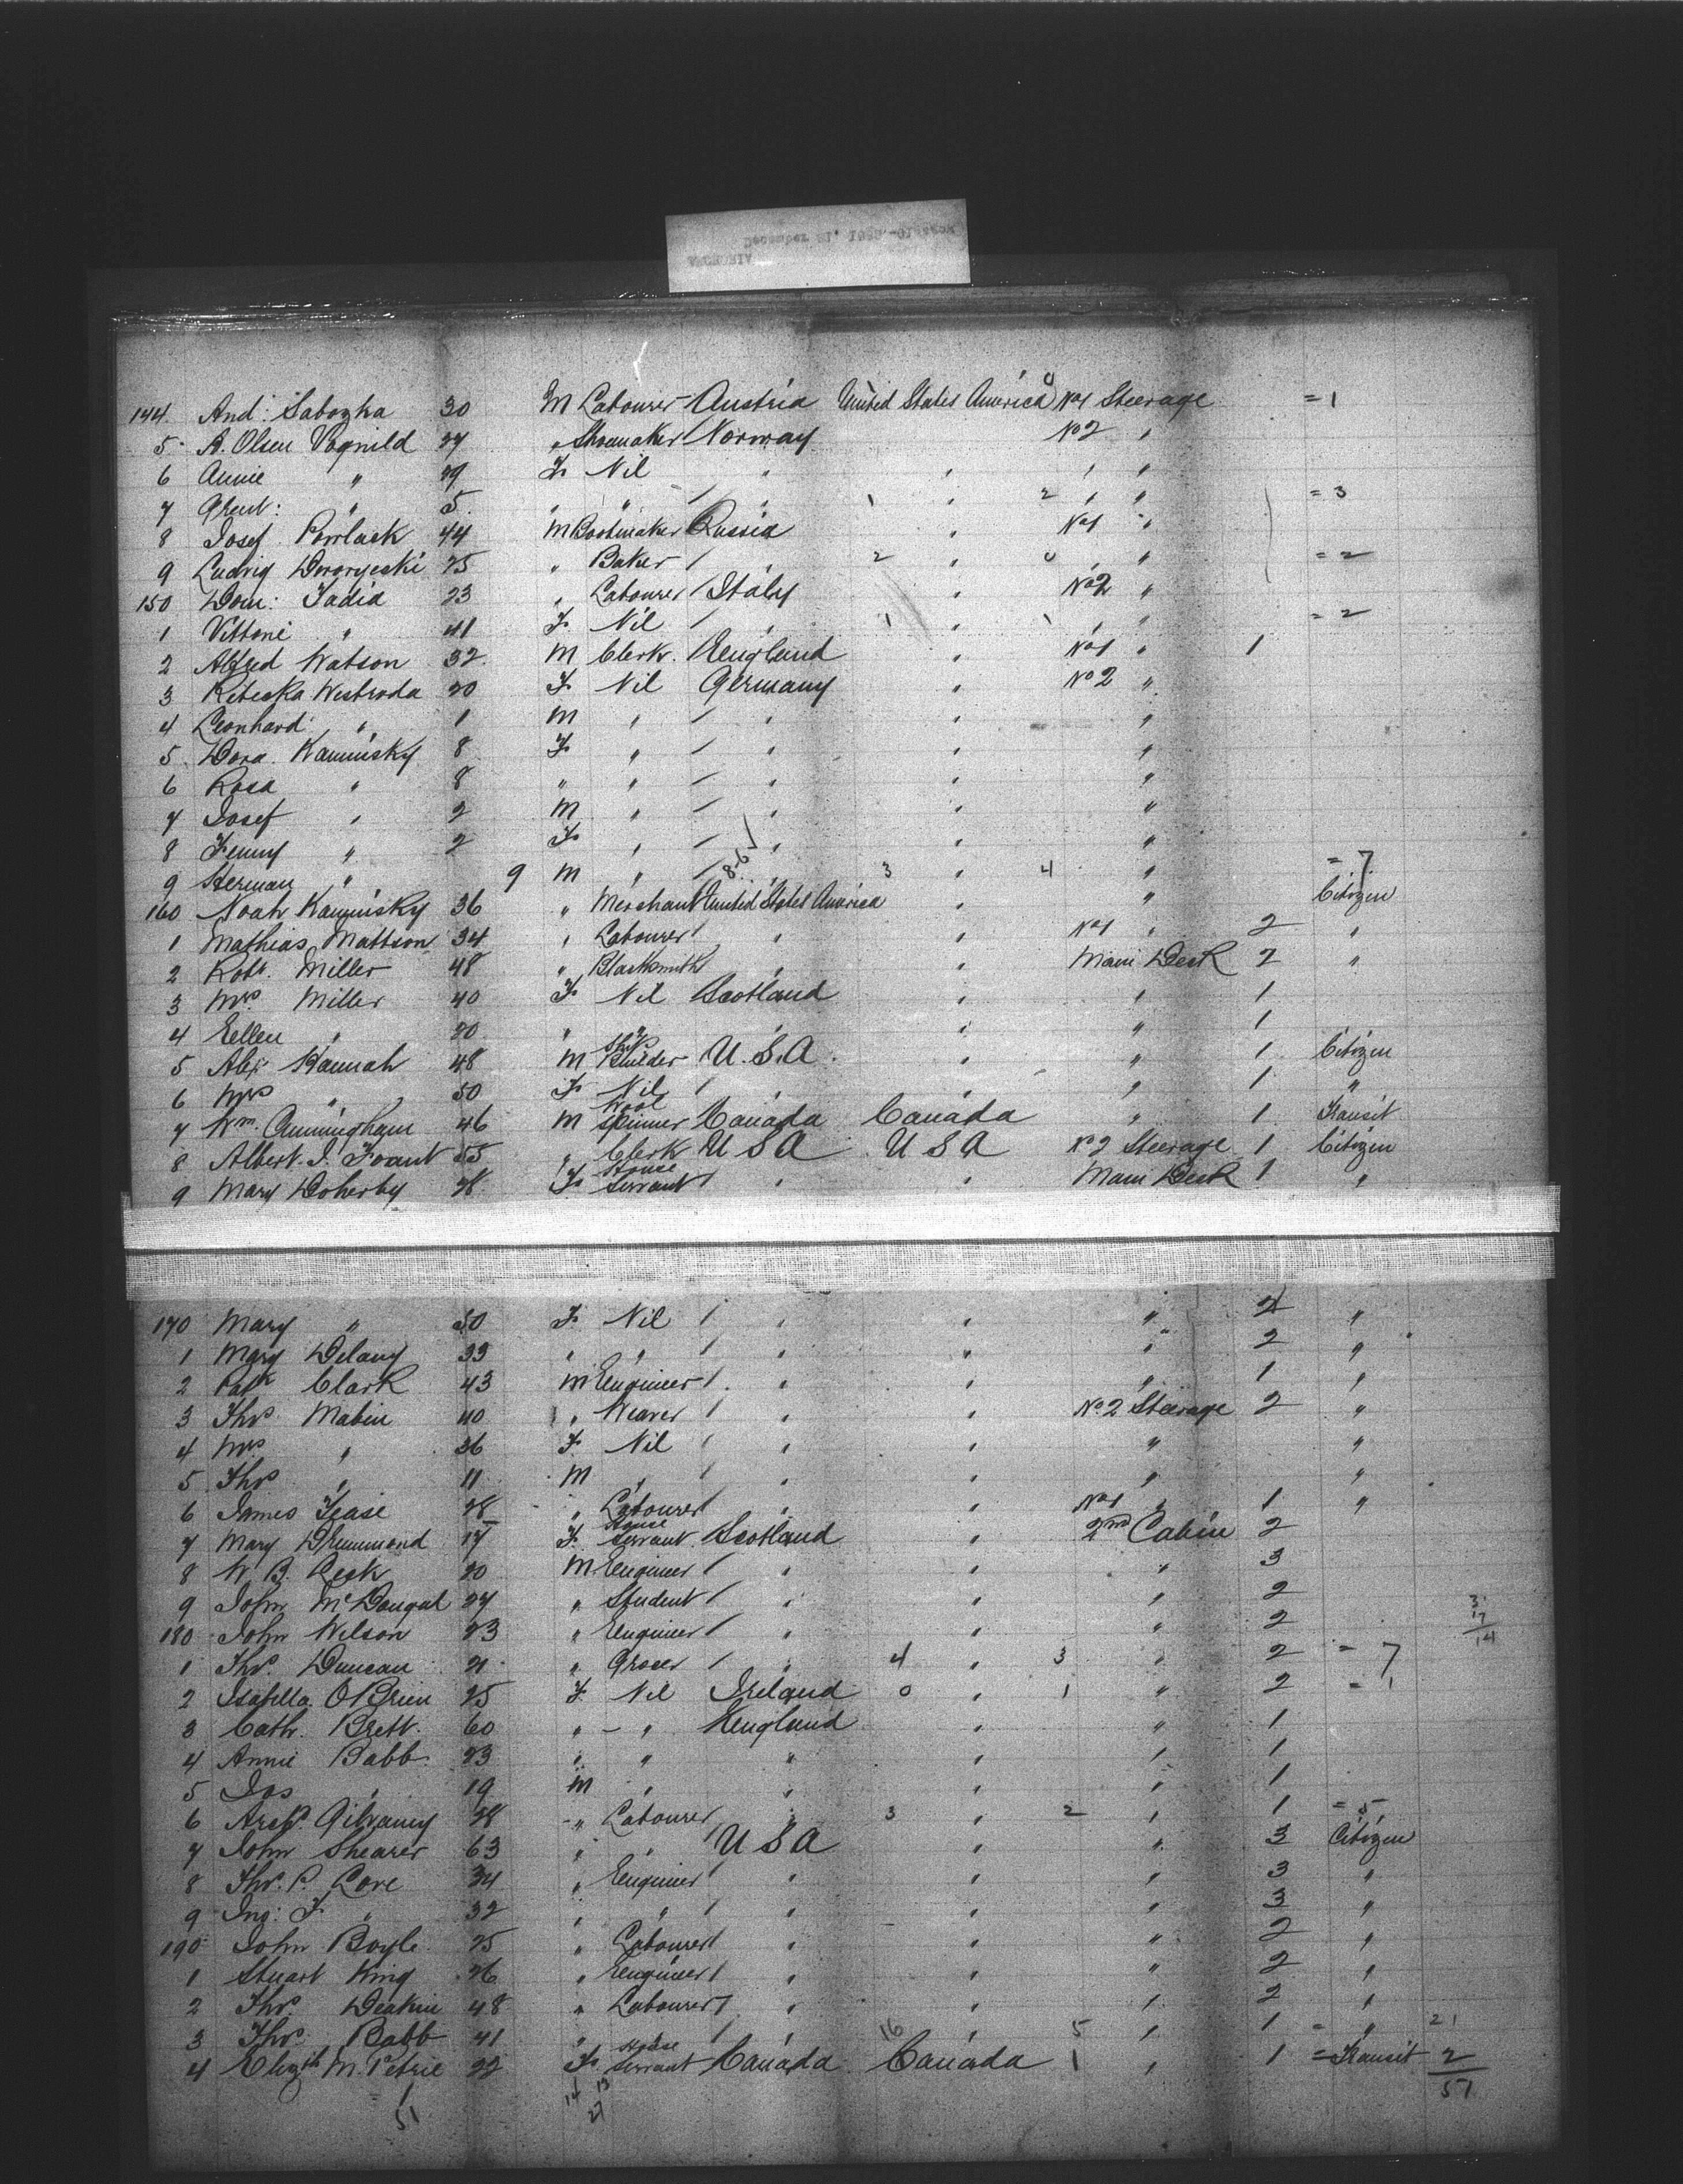 December 21, 18
144. And: Sabozka 30 M Labourer Austria United States America No1 Steerage = 1
5 A. Olsen Vognild 27 " Shoemaker Norway No2 "
6 Annie " 29 F Nil " " " "
7 " 5 " " " 1 " 2 " " = 3
8 Josef Pawlack 44 M Bootmaker Russia " No1 "
9 Ludvig 25 " Baker " 2 " 0 " " = 2
150 Dom: Tadia 23 " Labourer Italy " No2 "
1 Vittoni " 41 F Nil " 1 " 1 " " = 2
2 Alfred Watson 32 M Clerk England " No1 " 1
3 Westroda 20 F Nil Germany " No2 "
4 Leonhard " 1 M " " " "
5 Dora Kaminsky 8 F " " " "
6 Rosa " 8 " " " " "
7 Josef " 2 M " " " "
8 Fenny " 2 F " " " "
9 Herman " 9 M " 8-6 " 3 " 4 " = 7
160 Noah Kaminsky 36 " Merchant United States America " " Citizen
1 Mathias Mattson 34 " Labourer " " No1 " 2 "
2 Robt. Miller 48 " Blacksmith " " Main Deck 2 "
3 Mrs Miller 40 F Nil Scotland " " 1
4 Eellen " 20 " " " " " 1
5 Alex Hannah 48 M Ship Builder U.S.A. " " 1 Citizen
6 Mrs " 50 F Nil " " " 1 "
7 Wm. Cunningham 46 M Wool Spinner Canada Canada " 1 Transit
8 Albert. J. 55 " Clerk U S A U S A No 2 Steerage 1 Citizen
9 Mary Doherty 28 F House Servant " " Main Deck 1 "
170 Mary " 50 F Nil " " " 2 "
1 Mary Delany 33 " " " " " 2 "
2 Patk Clark 43 M Engineer " " " 1 "
3 Thos Mabin 40 " Weaver " " No 2 Steerage 2 "
4 Mrs " 36 F Nil " " " "
5 Thos " 11 M " " " " "
6 James Tease 28 " Labourer " " No1 " 1 "
7 Mary Drummond 17 F House Servant Scotland " 2nd Cabin 2
8 W. B. Leck 20 M Engineer " " " 3
9 John McDougal 27 " Student " " " 2 3
180 John Wilson 23 " Engineer " " " 2 17 14
1 Thos. Duncan 21 " Grocer " 4 " 3 " 2 = 7
2 Isabella O'Brien 25 F Nil Ireland 0 " 1 " 2 = 1
3 Cath. Brett 60 " - " England " " 1
4 Annie Babb 23 " " " " " 1
5 Jos " 19 M " " " " 1
6 Archd. Gilvaney 28 " Labourer " 3 " 2 " 1 = 5
7 John Shearer 63 " " U S A " " 3 Citizen
8 Thos. P. Love 34 " Engineer " " " 3 "
9 Jno: F. " 32 " " " " " 3 "
190 John Boyle 25 " Labourer " " " 2 "
1 Stuart King 26 " Engineer " " " 2 "
2 Thos. Deakin 48 " Labourer " " " 2 "
3 Thos Babb 41 " " " 16 " 5 " 1 = " 21
4 Elizth M. Petrie 22 F House Servant Canada Canada 1 " 1 = Transit 2
= 1 14 13 51
51 27